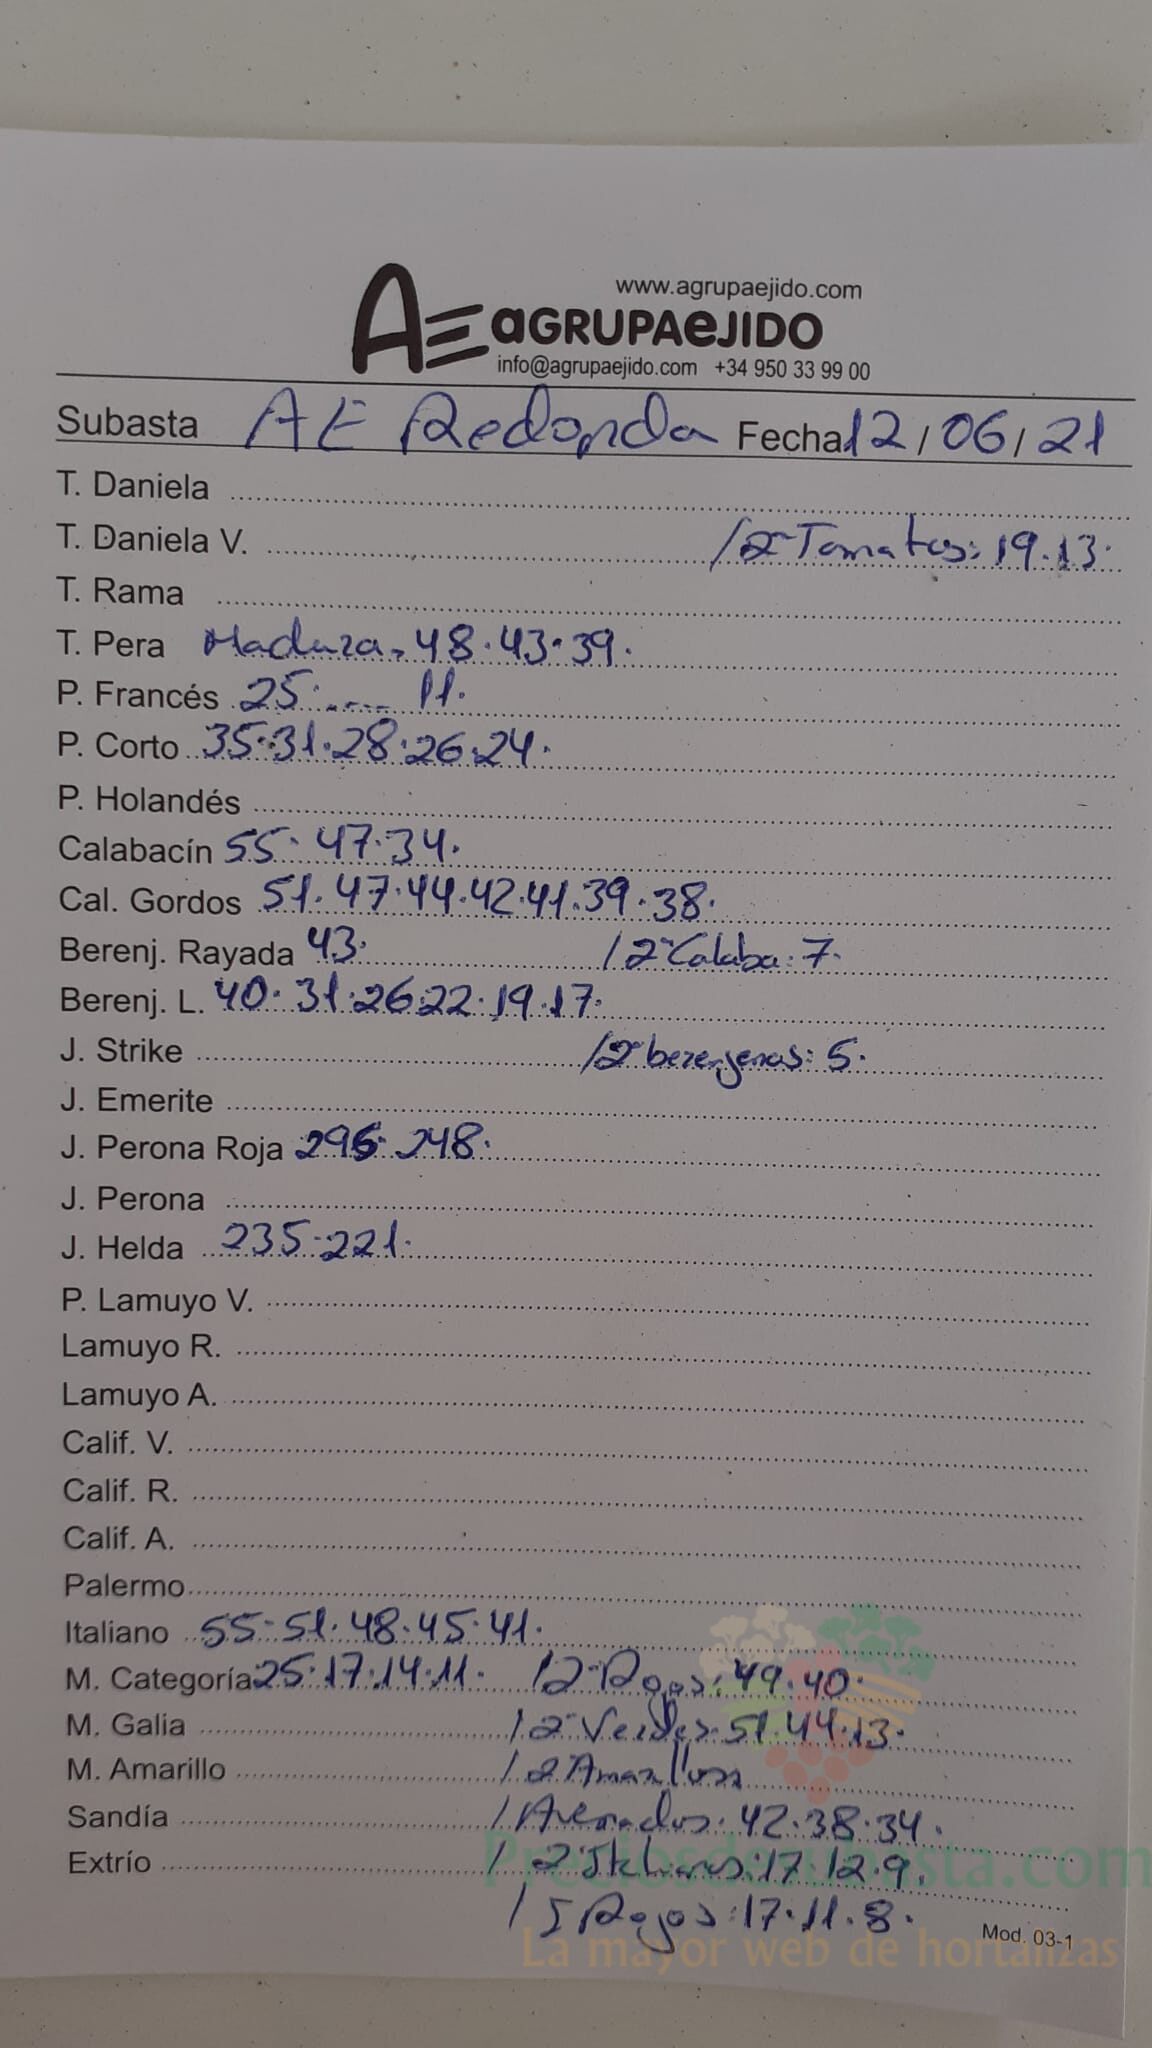 www.agrupaejido.com
AE aGRUPAeJIDO
info@agrupaejido.com +34 950 33 99 00
Subasta AE Redonda Fecha 12/06/21
T. Daniela
T. Daniela V. / 2ª Tomates: 19.13.
T. Rama
T. Pera Madura. 48.43.39.
P. Francés 25. .... 11.
P. Corto 35.31.28.26.24.
P. Holandés
Calabacín 55. 47.34.
Cal. Gordos 51.47.44.42.41.39.38.
Berenj. Rayada 43. / 2ª Calaba: 7.
Berenj. L. 40.31.26.22.19.17.
J. Strike / 2ª berenjenas: 5.
J. Emerite
J. Perona Roja 295. 248.
J. Perona
J. Helda 235.221.
P. Lamuyo V.
Lamuyo R.
Lamuyo A.
Calif. V.
Calif. R.
Calif. A.
Palermo
Italiano 55.51.48.45.41.
M. Categoría 25.17.14.11. / 2ª Rojos: 49.40.
M. Galia / 2ª Verdes: 51.44.13.
M. Amarillo / 2ª Amarillos
Sandía / 42.38.34.
Extrío / 2ª Italianos: 17.12.9.
Preciosdesubasta.com
/ I Rojos: 17.11.8.
Mod. 03-1
La mayor web de hortalizas